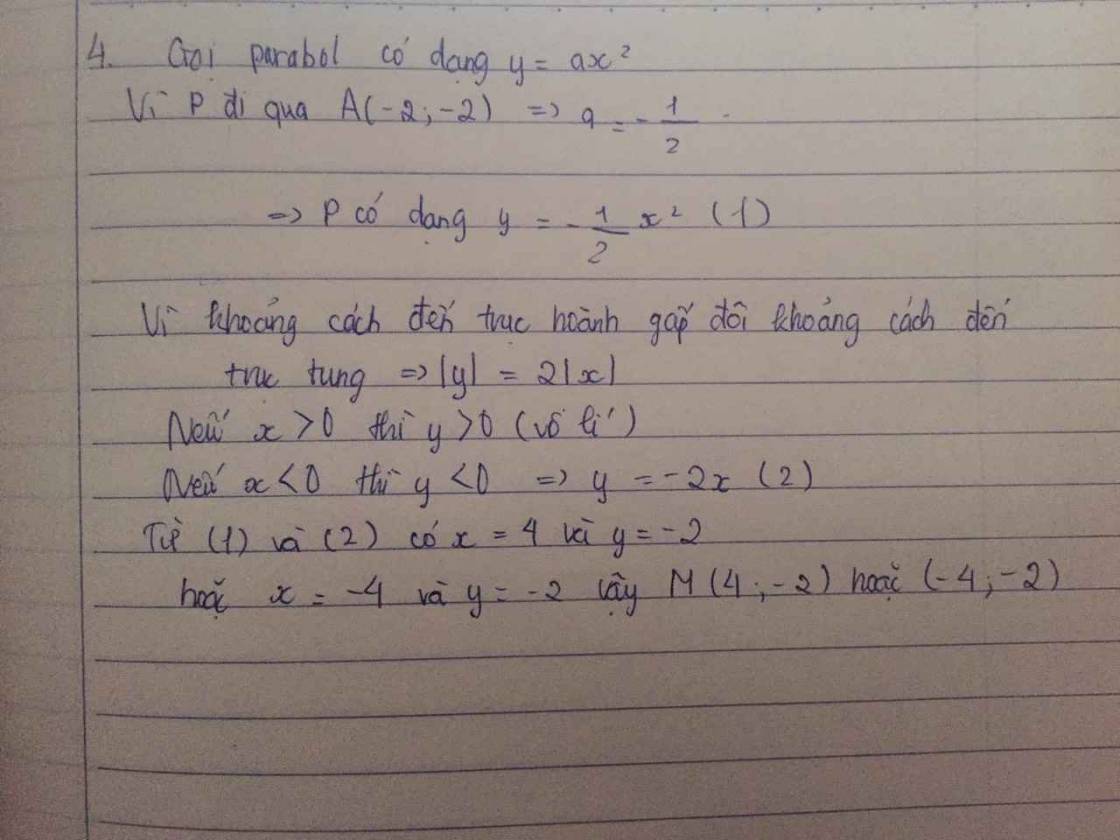 4. Gọi parabol có dạng y = ax²
Vì P đi qua A(-2;-2) => a = -1/2
=> P có dạng y = -1/2 x² (1)
Vì khoảng cách đến trục hoành gấp đôi khoảng cách đến
trục tung => |y| = 2|x|
Nếu x > 0 thì y > 0 (vô lí)
Nếu x < 0 thì y < 0 => y = -2x (2)
Từ (1) và (2) có x = 4 và y = -2
hoặc x = -4 và y = -2 vậy M (4;-2) hoặc (-4;-2)